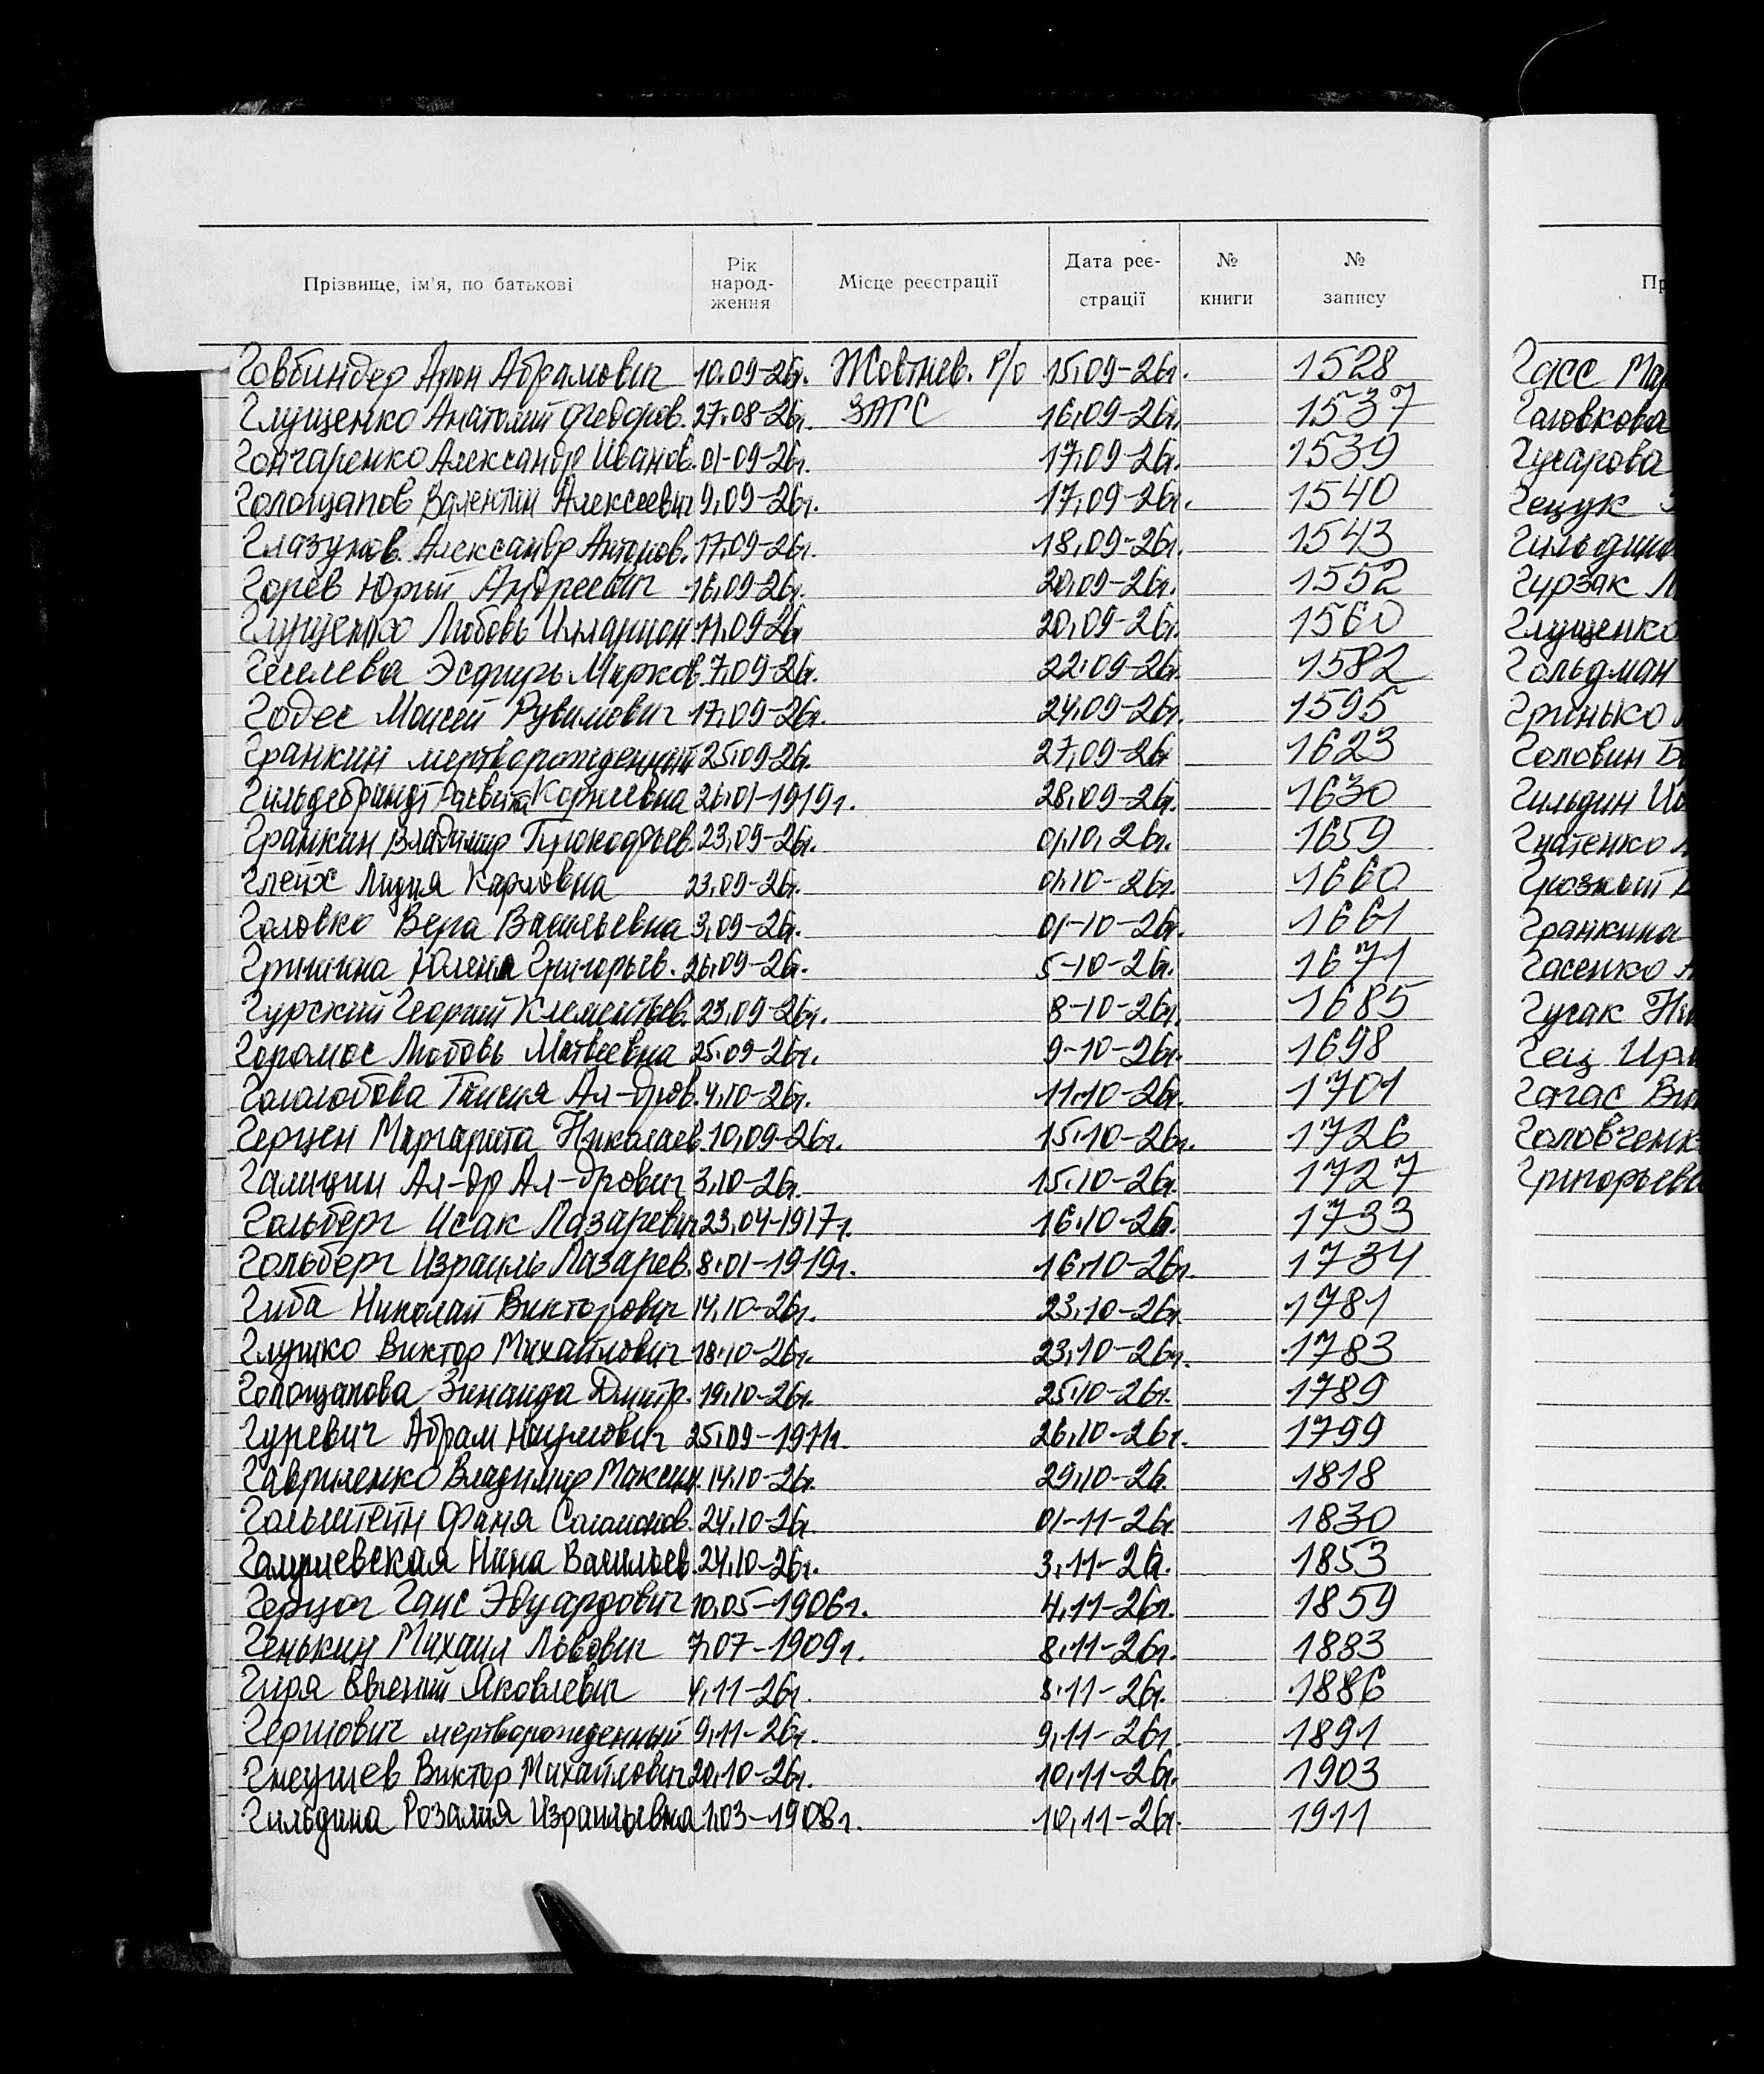 Прізвище, ім'я, по батькові Рік народ-ження Місце реєстрації Дата реє-страції № книги № запису Пр
Говбиндер Арон Абрамович 10.09-26г. Жовтнев. р/о 15,09-26г. 1528
Глущенко Анатолий Федоров. 27.08-26г. ЗАГС 16,09-26г. 1537
Гончаренко Александр Иванов. 01-09-26г. 17,09-26г. 1539
Голощапов Валентин Алексеевич 9,09-26г. 17,09-26г. 1540
Глазунов Александр Антонов. 17,09-26г. 18,09-26г. 1543
Горев Юрий Андреевич 16,09-26г. 20,09-26г. 1552
Глущенко Любовь Илларион. 11,09-26г 20,09-26г. 1560
Геселева Эсфирь Марков. 7,09-26г. 22,09-26г. 1582
Годес Моисей Рувимович 17,09-26г. 24,09-26г. 1595
Гранкин мертворожденный 25,09-26г. 27,09-26г 1623
Гильдебрандт Корнеевна 26,01-1919г. 28,09-26г. 1630
Гранкин Владимир Прокофьев. 23,09-26г. 01,10,26г. 1659
Глейх Лидия Карловна 23,09-26г. 01,10-26г. 1660
Головко Вера Васильевна 3,09-26г. 01-10-26г. 1661
Гришина Юлена Григорьев. 26,09-26г. 5-10-26г. 1671
Гурский Георгий Клементьев. 23,09-26г. 8-10-26г. 1685
Горомос Любовь Матвеевна 25,09-26г. 9-10-26г. 1698
Гололобова Таисия Ал-дров. 4,10-26г. 11,10-26г. 1701
Герцен Маргарита Николаев. 10,09-26г. 15,10-26г. 1726
Галицин Ал-др Ал-дрович 3,10-26г. 15,10-26г. 1727
Гольберг Исак Лазаревич 23,04-1917г. 16,10-26г. 1733
Гольберг Израиль Лазарев. 8,01-1919г. 16,10-26г. 1734
Гиба Николай Викторович 14,10-26г. 23,10-26г. 1781
Глушко Виктор Михайлович 18,10-26г. 23,10-26г. 1783
Голощапова Зинаида Дмитр. 19,10-26г. 25,10-26г. 1789
Гуревич Абрам Наумович 25,09-1911г. 26,10-26г. 1799
Гавриленко Владимир Максим. 14,10-26г. 29,10-26. 1818
Гольштейн Фаня Соломонов. 24,10-26г. 01-11-26г 1830
Галушевская Нина Васильев. 24,10-26г. 3,11-26г. 1853
Герцог Ганс Эдуардович 10,05-1906г. 4,11-26г. 1859
Генькин Михаил Львович 7,07-1909г. 8,11-26г. 1883
Гиря Евгений Яковлевич 4,11-26г. 8,11-26г. 1886
Гершович мертворожденный 9,11-26г. 9,11-26г. 1891
Гнеушев Виктор Михайлович 20,10-26г. 10,11-26г. 1903
Гильдина Розалия Израильевна 1,03-1908г. 10,11-26г. 1911
Гасс Мар
Головкова
Гусарова
Гецук
Гильдин
Гурзак
Глущенко
Гольдман
Гринько
Головин
Гильдин
Гнатенко
Грозный
Гранкина
Гасенко
Гусак
Гец Ири
Гагас
Головченк
Григорьева